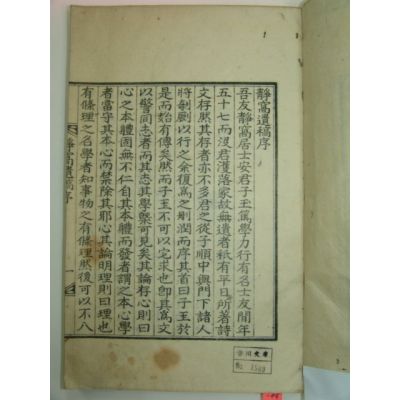 靜窩遺稿序
吾友靜窩居士安君子玉篤學力行有名士友間年
五十七而沒君濩落家故無遺者秖有平日所著詩
文存然其存者亦不多君之從子順中與門下諸人
將剞劂以行之余復爲之刪潤而序其首曰子玉於
是而始有傳矣然而子玉不可以完求也卽其爲文
以警同志者而其志其學槩可見矣其論存心則曰
心之本體固無不仁自其本體而發者謂之本心學
者當守其本心而禁除其邪心其論明理則曰理也
有條理之名學者知事物之有條理然後可以不八
靜窩遺稿序
一